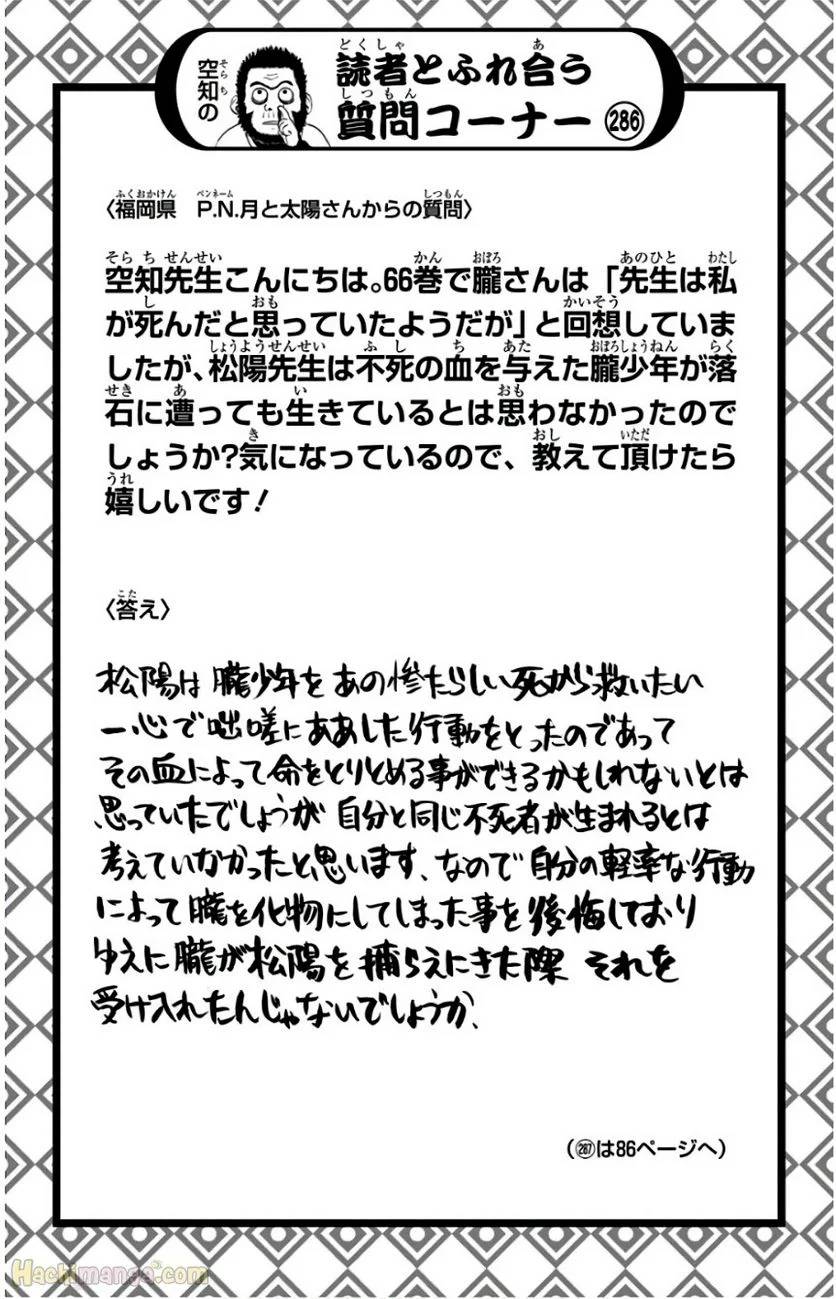 空知の
読者とふれ合う
質問コーナー 286
〈福岡県　P.N.月と太陽さんからの質問〉
空知先生こんにちは。66巻で朧さんは「先生は私
が死んだと思っていたようだが」と回想していま
したが、松陽先生は不死の血を与えた朧少年が落
石に遭っても生きているとは思わなかったので
しょうか?気になっているので、教えて頂けたら
嬉しいです!
〈答え〉
松陽は朧少年をあの惨たらしい死から救いたい
一心で咄嗟にああした行動をとったのであって
その血によって命をとりとめる事ができるかもしれないとは
思っていたでしょうが 自分と同じ不死者が生まれるとは
考えていなかったと思います、なので自分の軽率な行動
によって朧を化物にしてしまった事を後悔しており
ゆえに朧が松陽を捕らえにきた際 それを
受け入れたんじゃないでしょうか、
(287は86ページへ)
Hachimanga.com